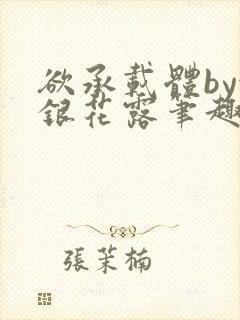 欲承載體by
銀花露筆趣
張茉楠